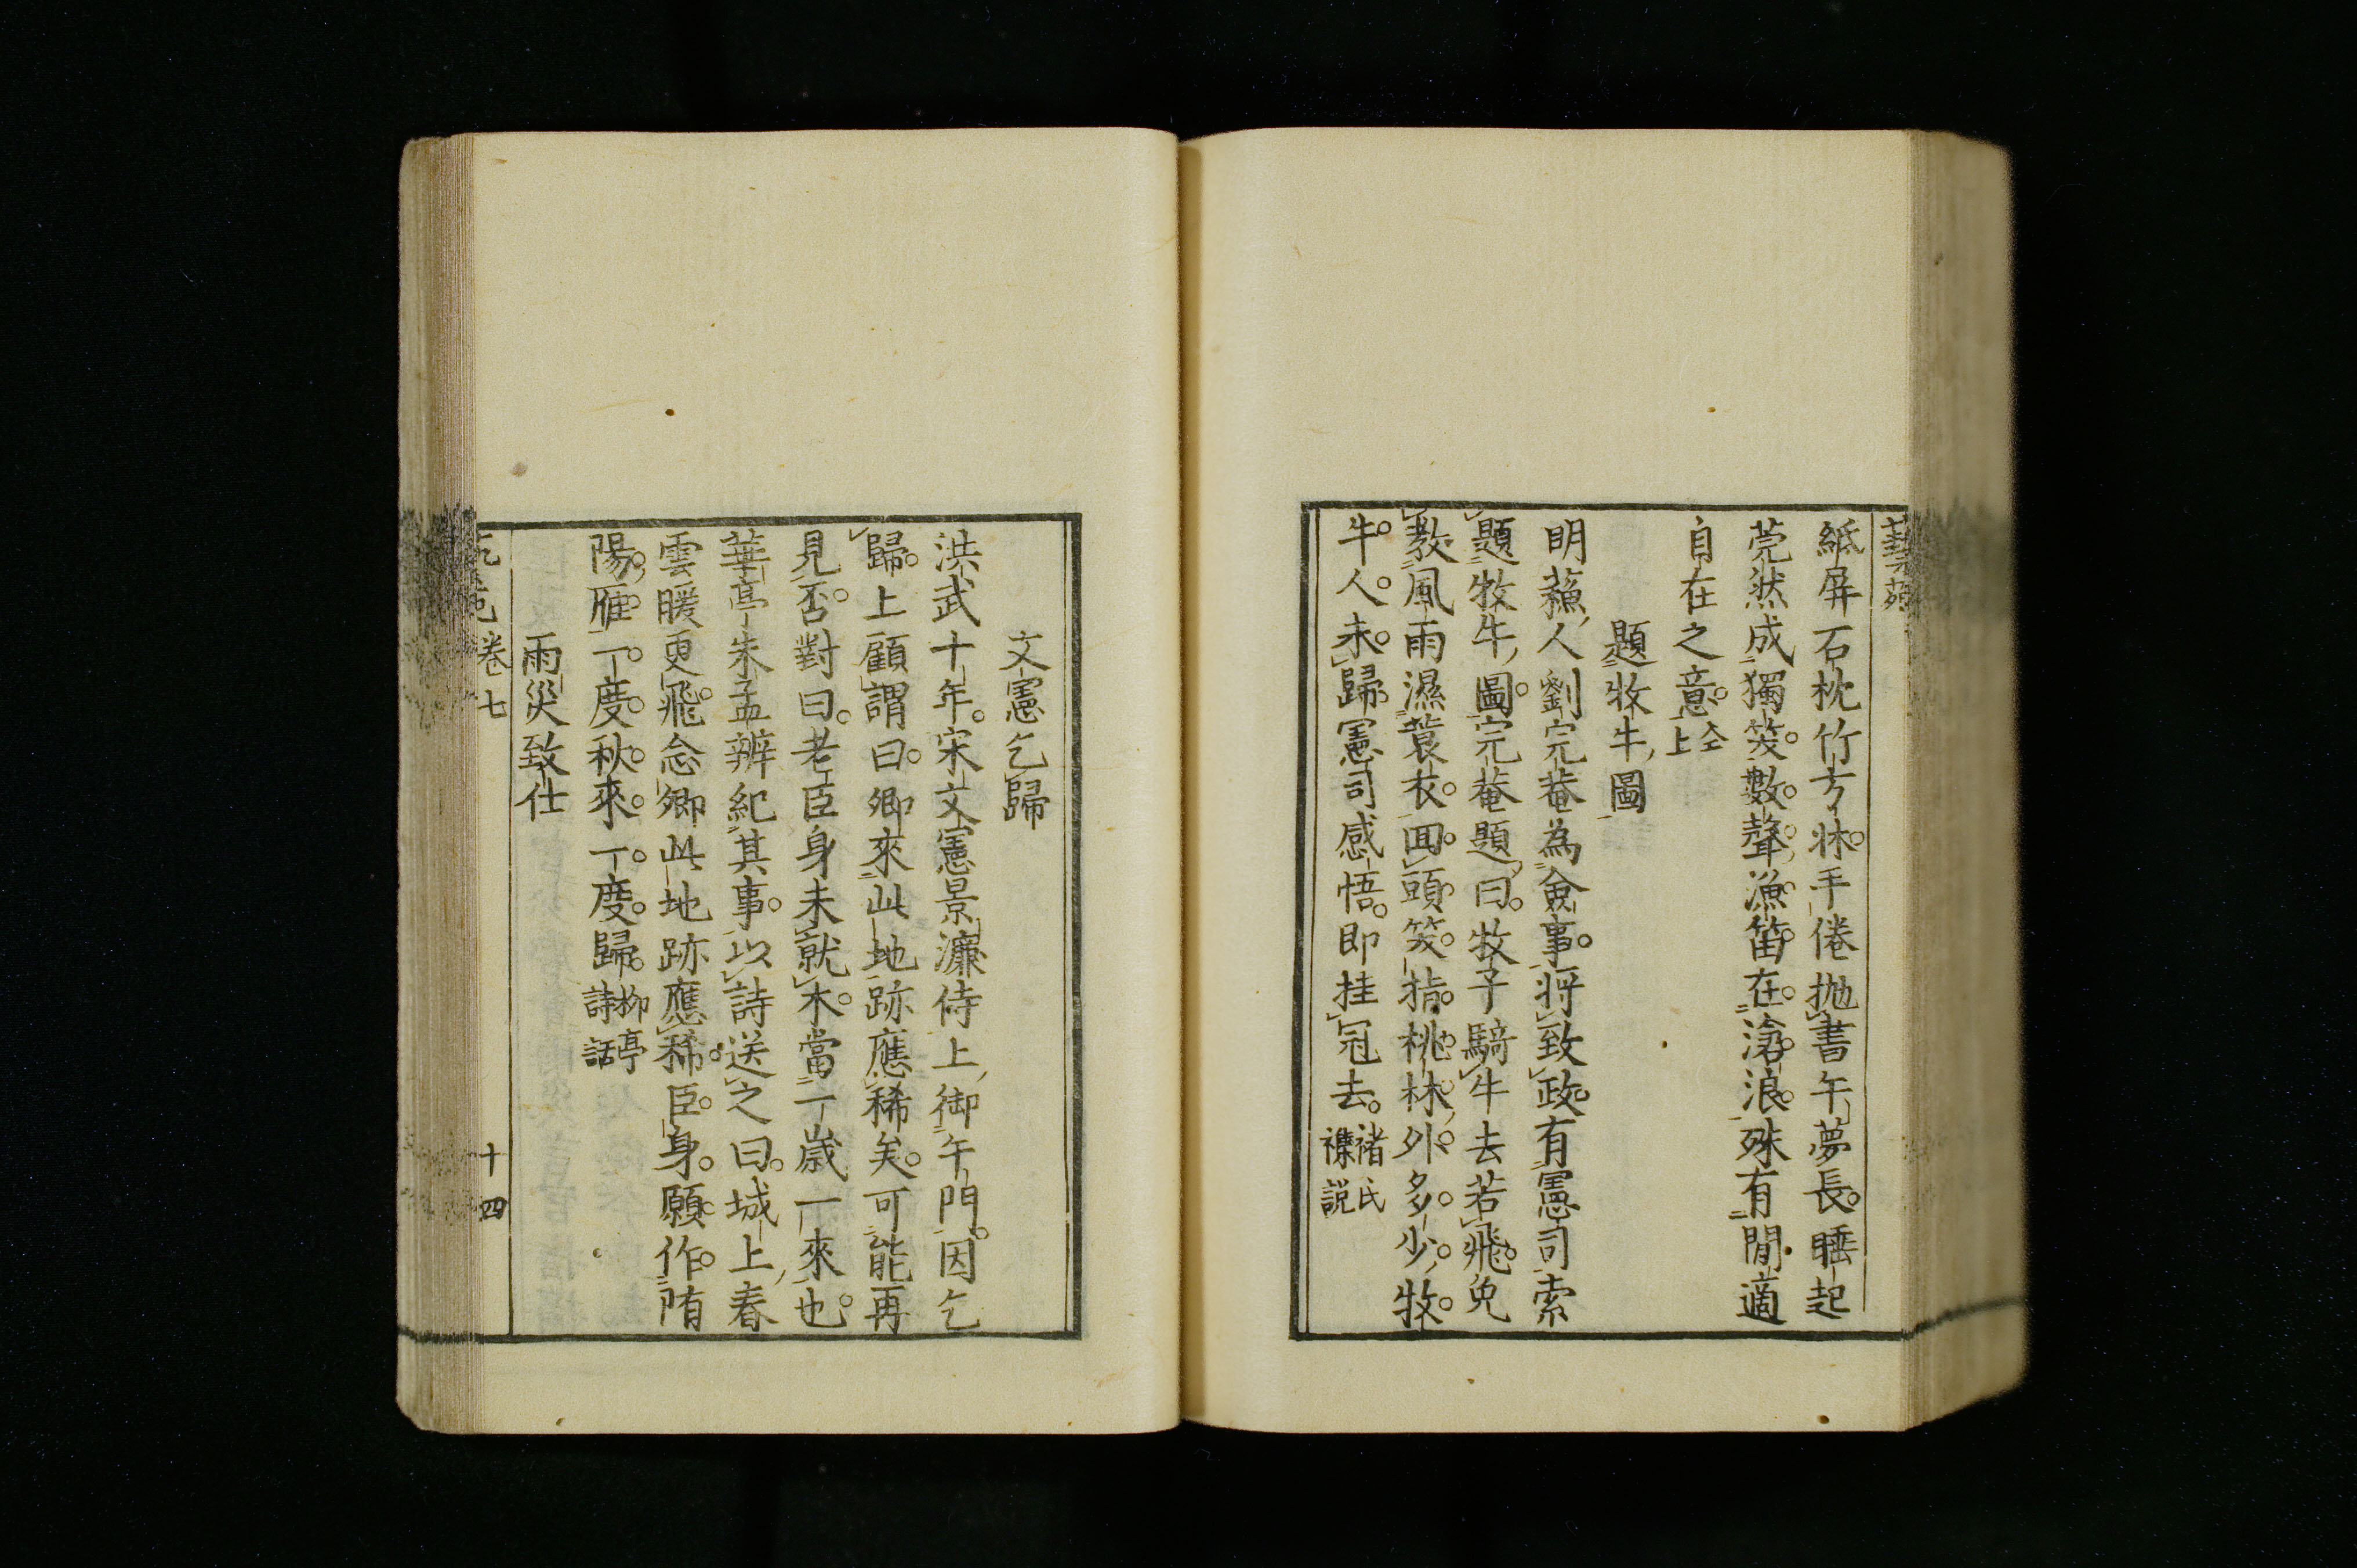 藝苑
紙屏石枕竹方牀手倦抛書午夢長睡起
莞然成獨笑數聲漁笛在滄浪殊有閒適
自在之意仝上
題牧牛圖
明蘓人劉完菴為僉事将致政有憲司索
題牧牛圖完菴題曰牧子騎牛去若飛免
教風雨濕蓑衣囬頭笑指桃林外多少牧
牛人未歸憲司感悟即挂冠去褚氏襍説
文憲乞歸
洪武十年宋文憲景濂侍上御午門因乞
歸上顧謂曰卿來此地跡應稀矣可能再
見否對曰老臣身未就木當一歲一來也
華亭朱孟辨紀其事以詩送之曰城上春
雲暖更飛念卿此地跡應稀臣身願作隋
陽雁一度秋來一度歸柳亭詩話
雨災致仕
卷七
十四